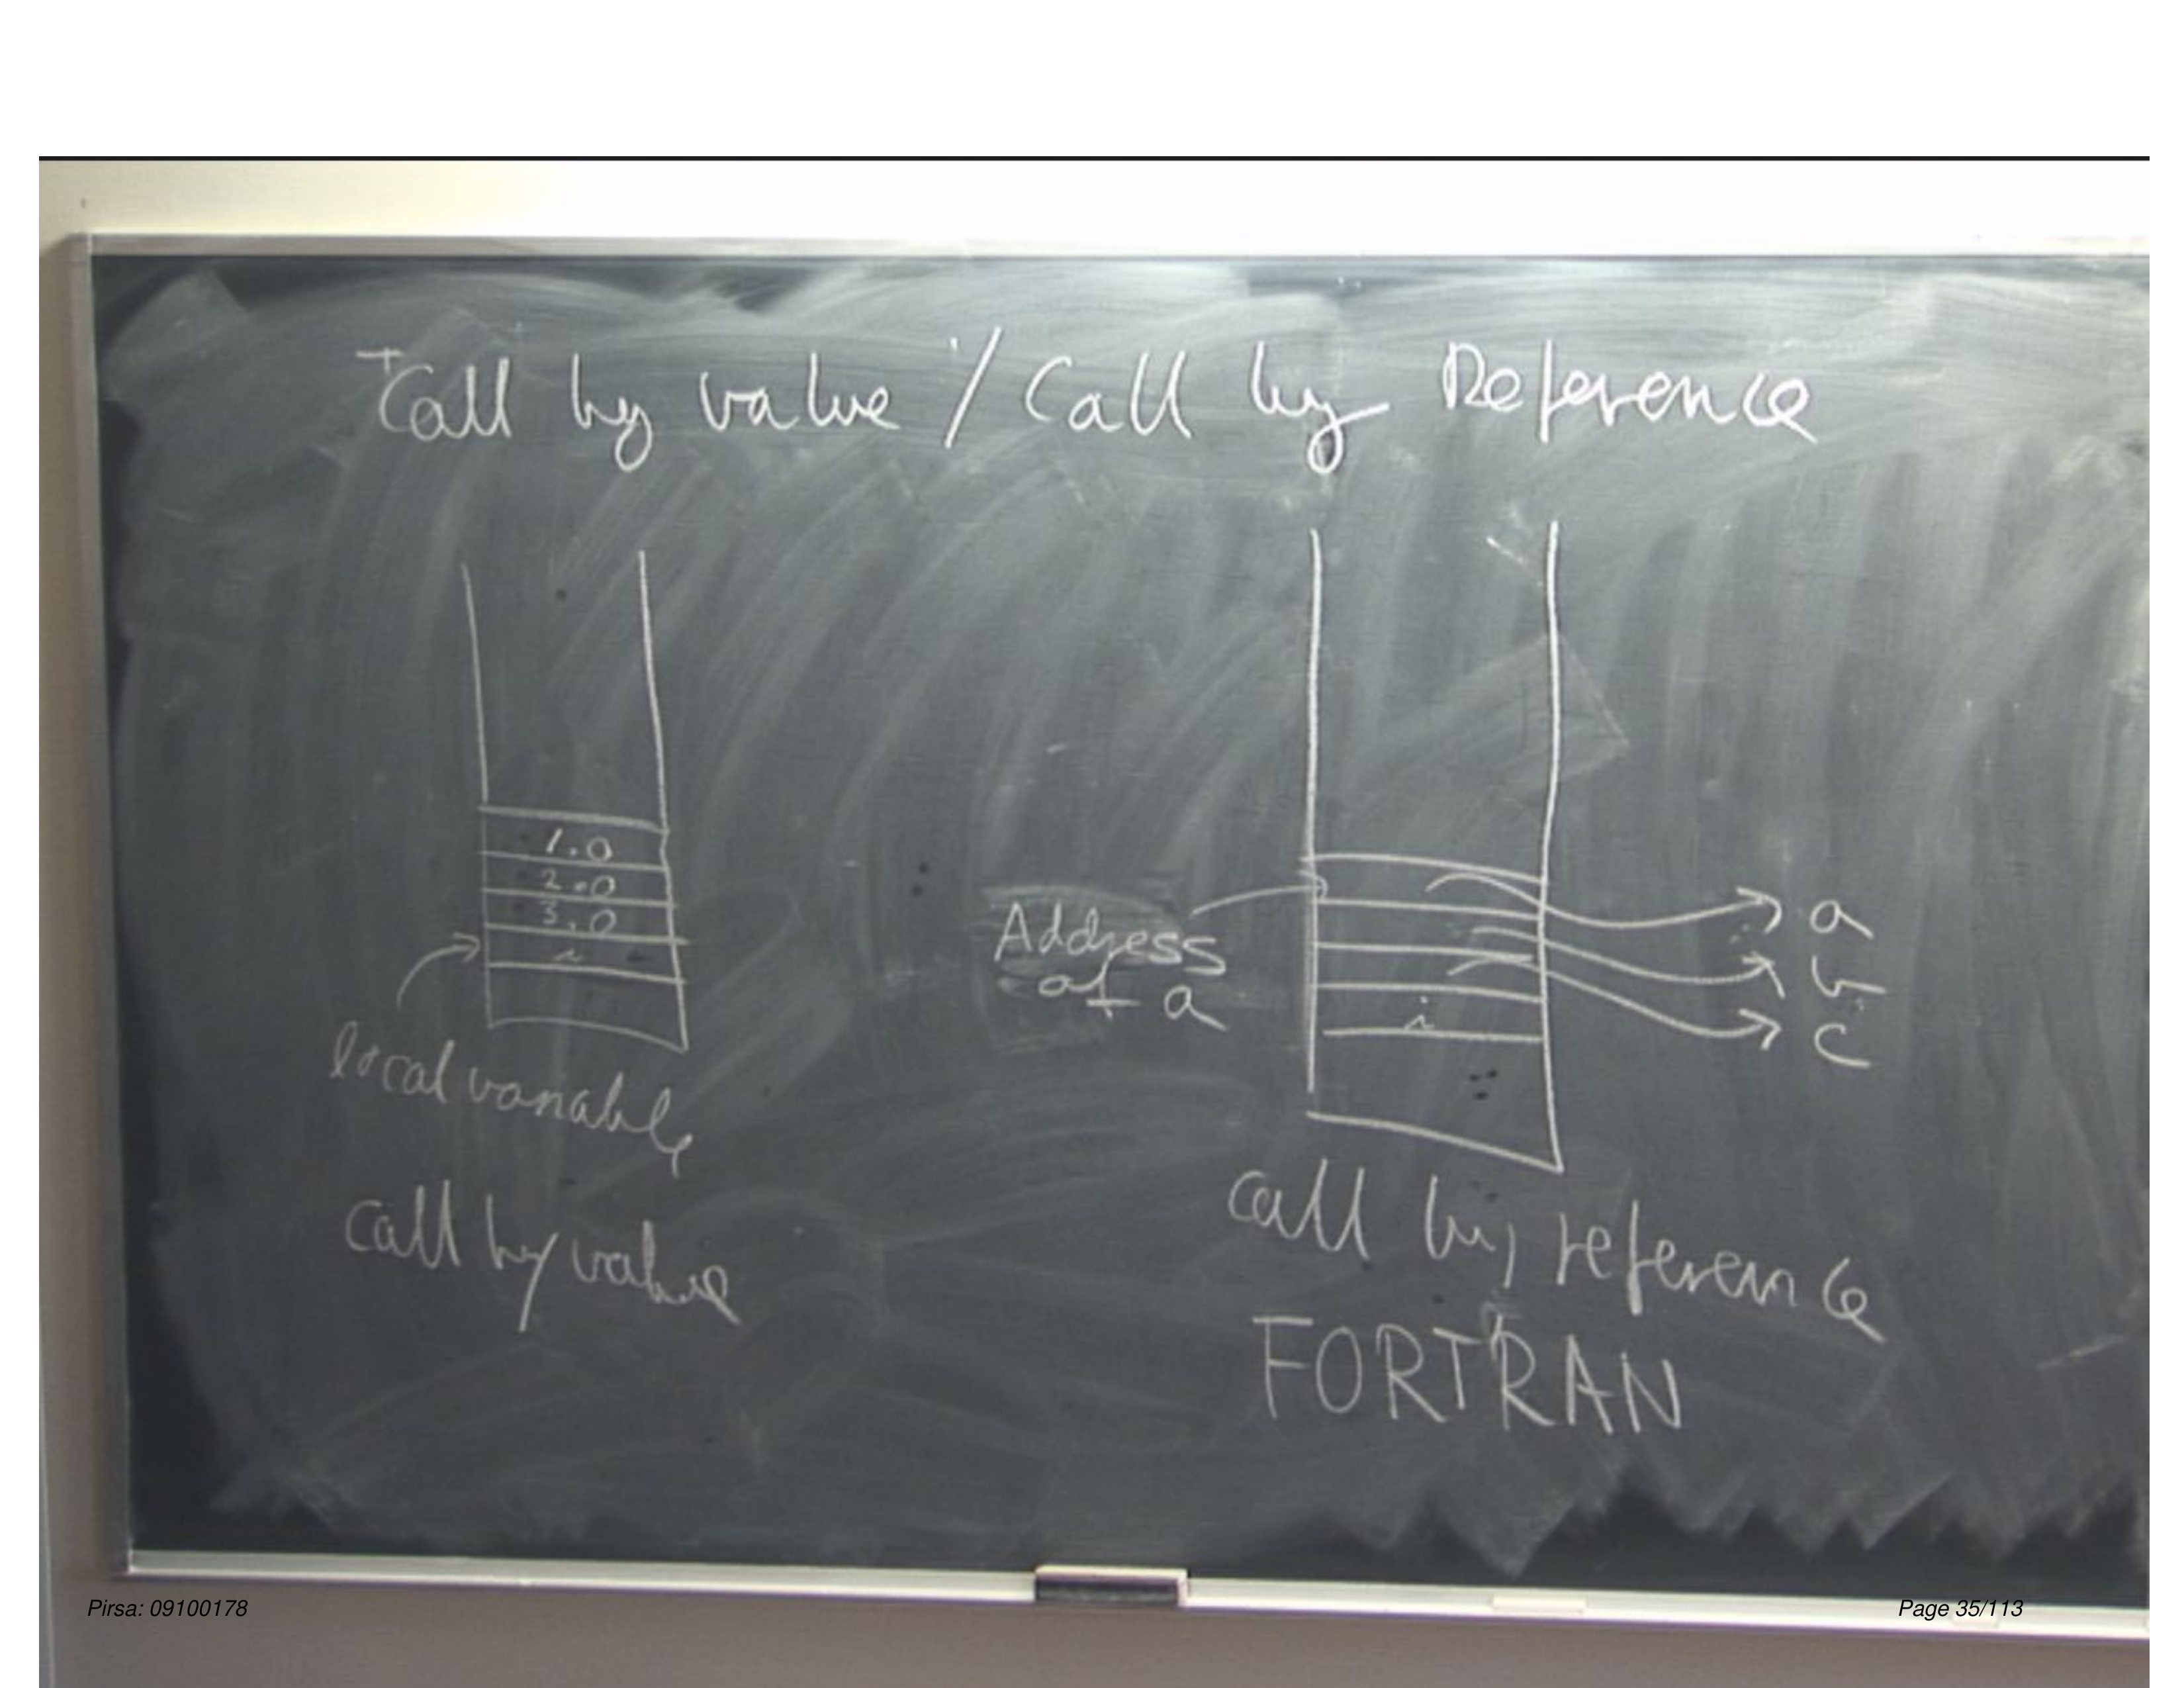 Call by value / Call by Reference
1.0
2.0
3.0
i
local variable
call by value
Address
of a
a
b
c
i
call by reference
FORTRAN
Pirsa: 09100178
Page 35/113